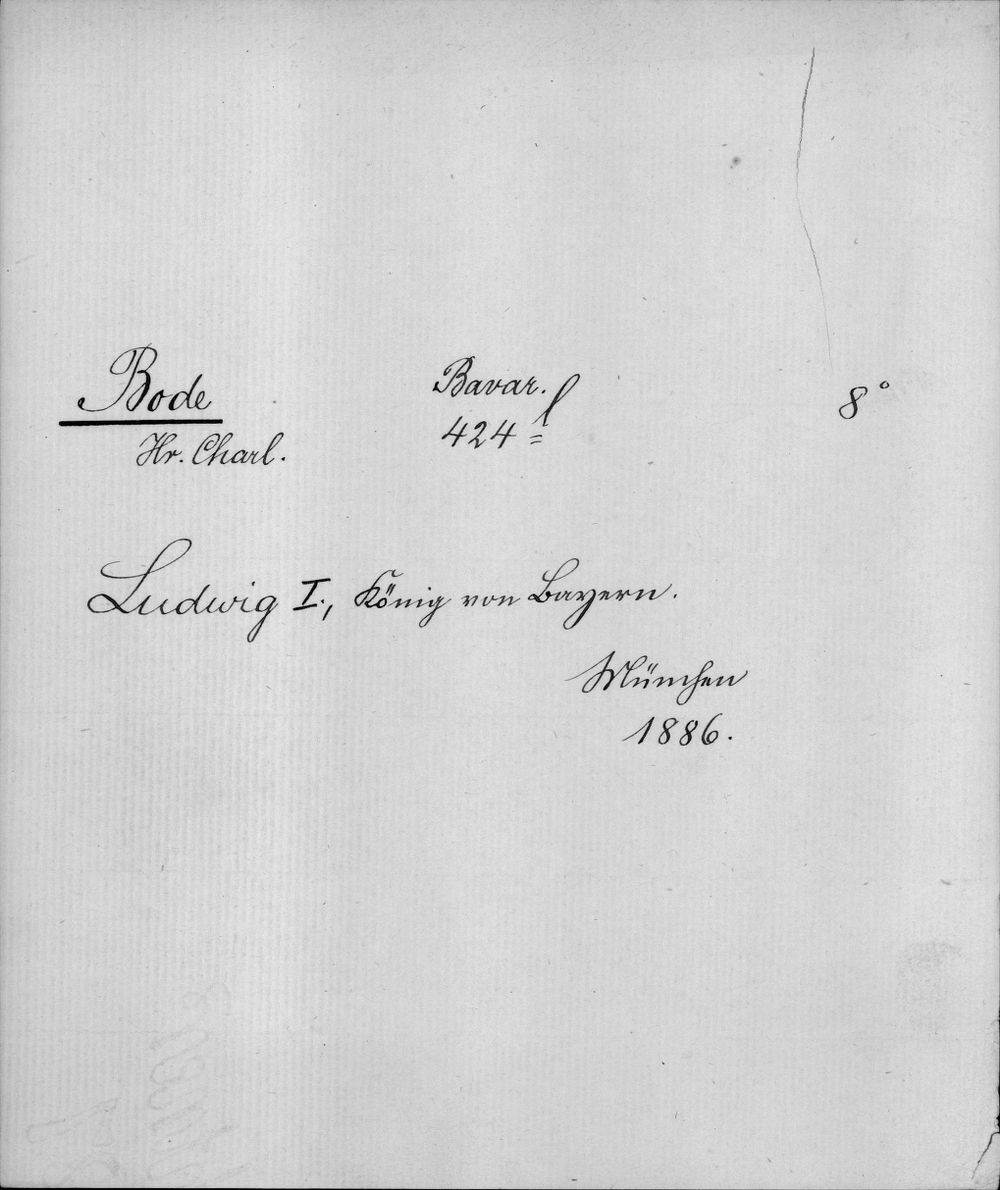 Bode
Hr. Charl.
Bavar.
424 l
8°
Ludwig I., König von Bayern.
München
1886.